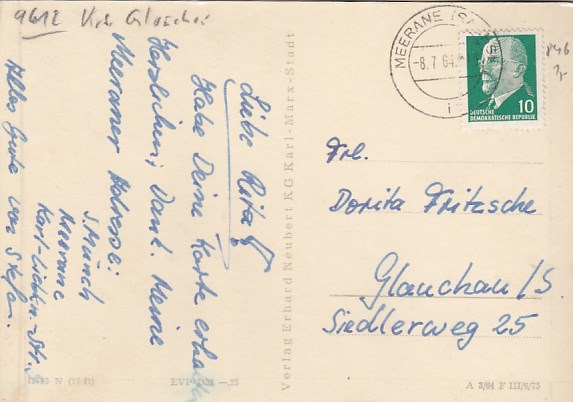 9612 Krs. Glauchau
Liebe Rita!
Habe Deine Karte erhalten
Herzlichen Dank. Meine
Meeraner Adresse:
S. Münch
Meerane
Karl-Liebkn.-Str.
Alles Gute von Stefan.
15/95 N (17 12)
EVP DM –,25
Verlag Erhard Neubert KG Karl-Marx-Stadt
MEERANE (SACHS)
-8.7.64.
1
846
10
DEUTSCHE
DEMOKRATISCHE REPUBLIK
Frl.
Dorita Fritzsche
Glauchau/S.
Siedlerweg 25
A 3/64 F III/6/73